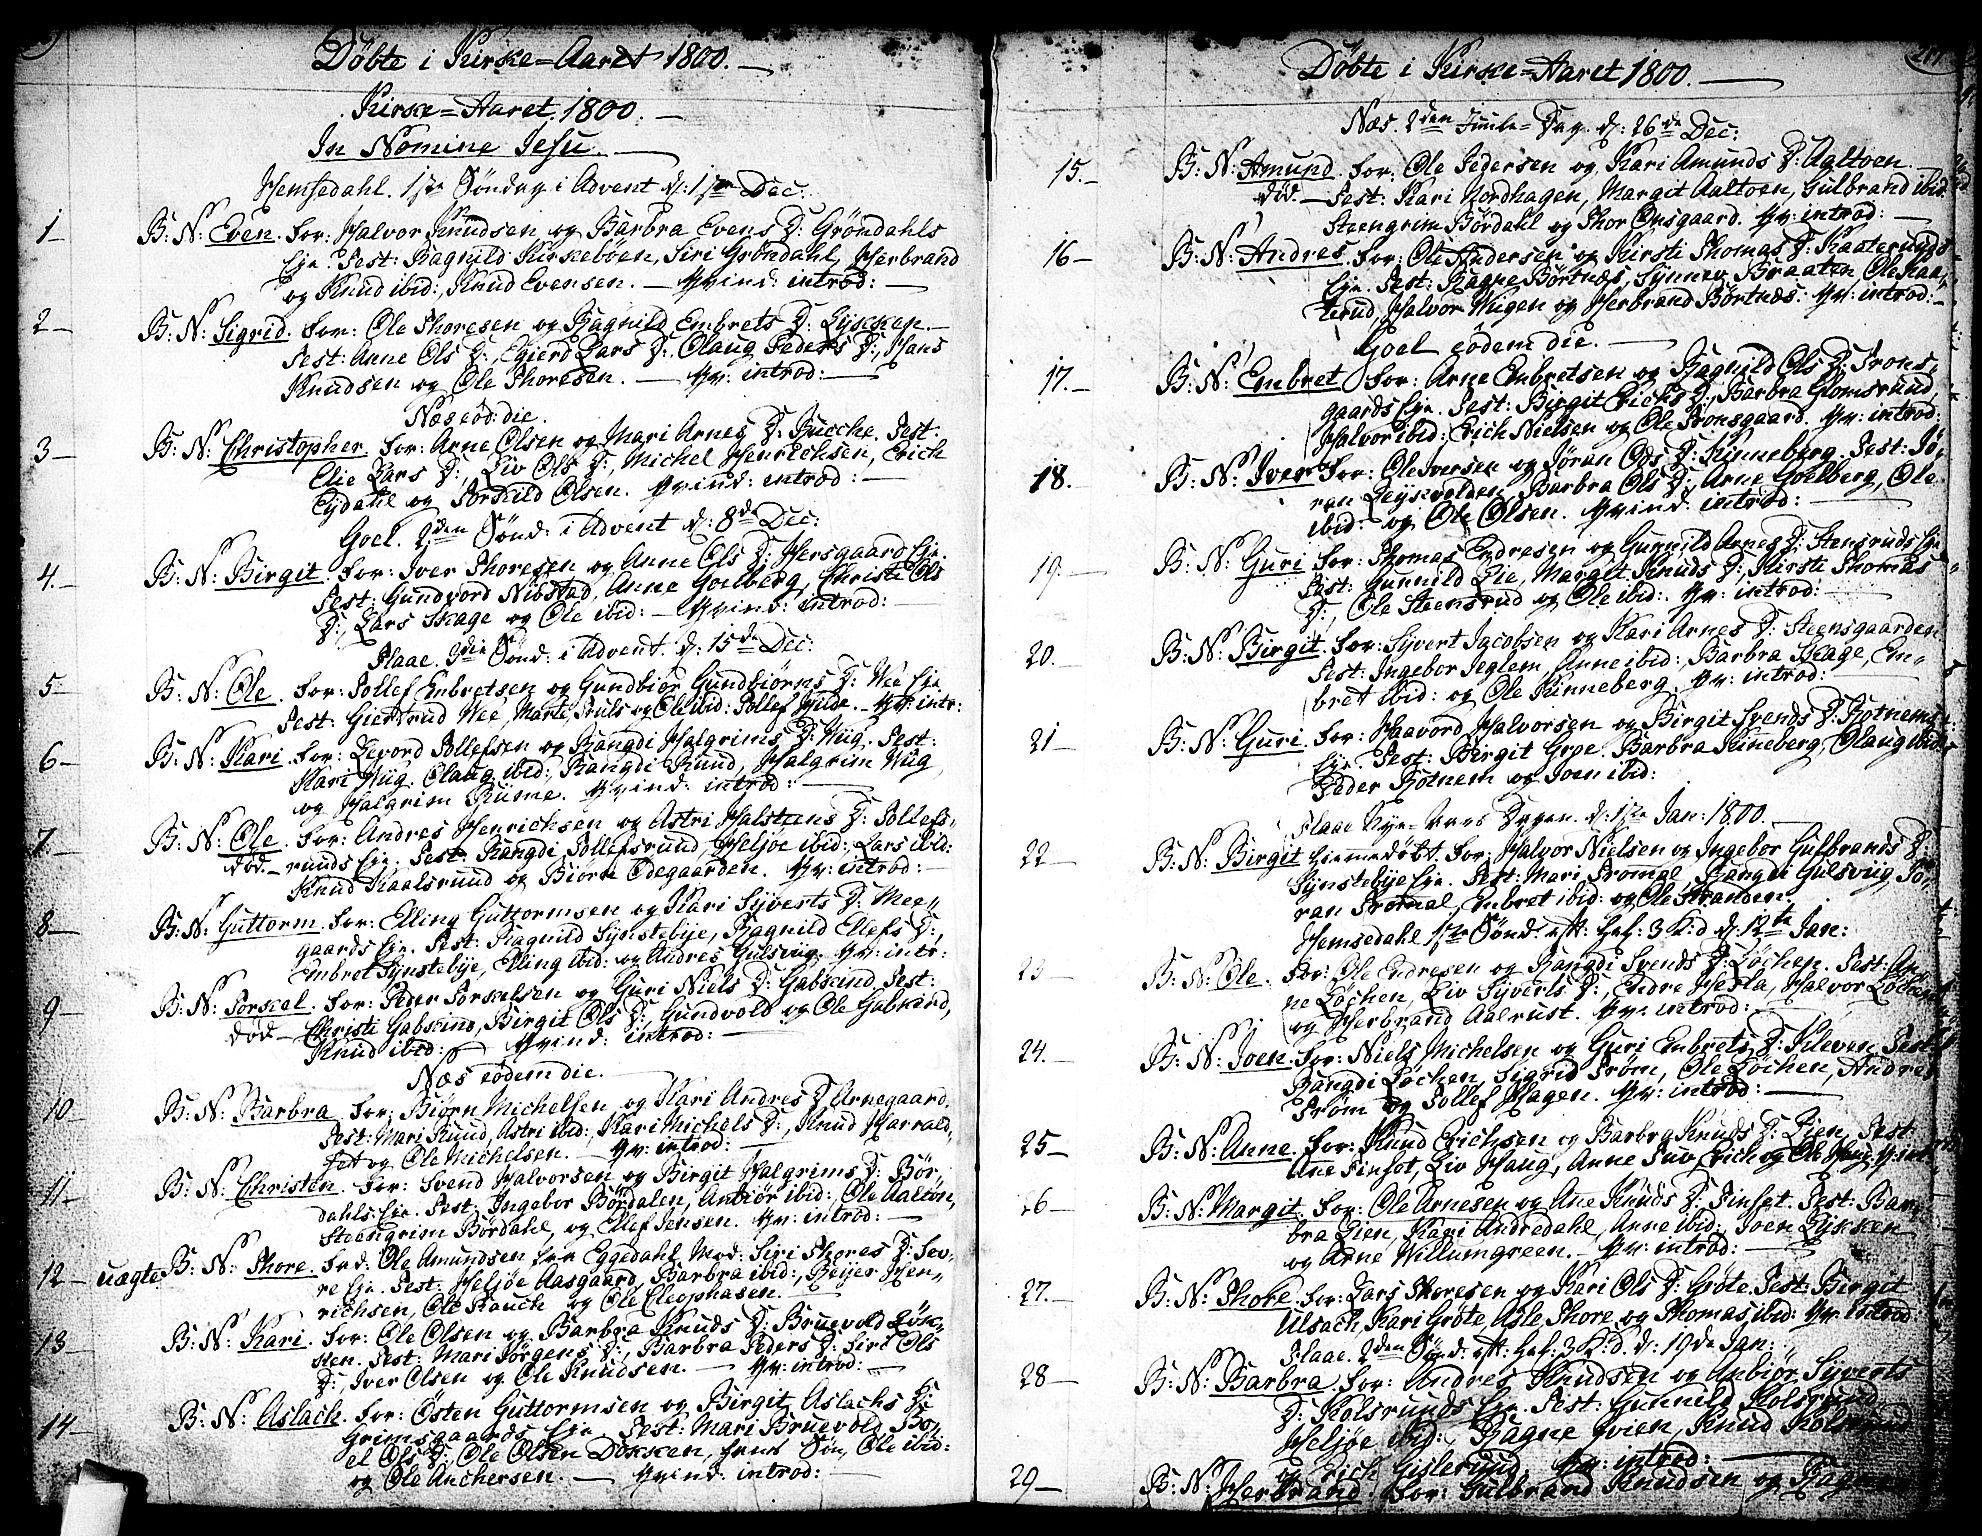 Döbte i Kirke=Aaret 1800.
Kirke=Aaret 1800.
In Nomine Jesu.
Hemsedahl. 1ste Söndag i Advent d: 1ste Dec:
1 B: N: Even. For: Halvor Knudsen og Barbra Evens D: Gröndahls
Eje. Test: Ragnild Kirkeböen, Siri Gröndahl, Herbrand
og Knud ibid:, Knud Evensen. — Qvind: introd:
2 B: N: Sigrid. For: Ole Thoresen og Ragnild Embrets D: Lykken.
Test: Anne Ols D:, Egierd Lars D:, Olaug Peders D:, Hans
Knudsen og Ole Thoresen. — Qv: introd:
Næs eod: die.
3 B: N: Christopher. For: Arne Olsen og Mari Arnes D: Bucche. Test:
Elie Lars D:, Liv Ols D:, Michel Henrichsen, Erich
Eydahl og Torkild Olsen. Qvind: introd:
Goel. 2den Sönd: i Advent d: 8de Dec:
4. B: N: Birgit. For: Iver Thoresen og Anne Ols D: Hersgaard Eje.
Test: Gundvord Nibstad, Anne Goelberg, Christi Ols
D:, Lars Skage og Ole ibid: — Qvind: introd:
Flaae. 3die Sönd: i Advent. d: 15de Dec:
5 B: N: Ole. For: Tollef Embretsen og Gundbiör Gundbiörns D: Wee Eje
Test: Giertrud Wee, Marte, Truls og Ole ibid: Tollef Hilde. — Qv: intr:
6 B: N: Kari. For: Levord Tollefsen og Rangdi Halgrims D: Wiig. Test:
Kari Wiig. Olaug ibid:, Rangdi Ruud, Halgrim Wiig
og Halgrim Riime. Qvind: introd:
7 B: N: Ole. For: Andres Henrichsen og Astri Halsteens D: Tollefs,
död. — ruds Eje. Test: Rangdi Tollefsrud, Heljöe ibid:, Lars ibid:
Knud Kaalsrund og Biörn Ödegaarden. Qv: introd:
8 B: N: Guttorm. For: Elling Guttormsen og Kari Syverts D: Mee„
gaards Eje. Test: Ragnild Synstebye, Ragnild Ellefs D:,
Embret Synstebye, Elling ibid: og Andres Gulsviig. Qv: intr:
9 B: N: Torkel. For: Peder Torkelsen og Guri Niels D: Gabskind, Test:
död — Christi Gabskind, Birgit Ols D: Gundvold og Ole Gabskind,
Knud ibid: Qvind: introd:
Næs eodem die.
10 B: N: Barbra For: Biörn Michelsen og Kari Andres D: Arnegaard.
Test: Mari Ruud, Astri ibid:, Kari Michels D:, Knud Harrald„
set og Ole Michelsen. — Qv: introd:
11 B: N: Christen. For: Svend Halvorsen og Birgit Halgrims D: Bör„
dahls Eje. Test: Ingebor Bördalen, Anbiör ibid:, Ole Aaltön,
Steengrim Bördahl, og Ellef Jensen. Qv: introd:
12 uægte B: N: Thore. Fad: Ole Amundsen fra Eggedahl. Mod: Siri Thores D: Sev„
re Eje. Test: Heljöe Aasgaard, Barbra ibid:, Beijer Hen„
richsen, Ole Rauck og Ole Cleophasen.
13 B: N: Kari. For: Ole Olsen og Barbra Knuds D: Bruevold Lök„
sten. Test: Mari Jörgens D:, Barbra Peders D: Siri Ols
D:, Iver Olsen og Ole Knudsen. — Qv: introd:
14 B: N: Aslach. For: Östen Guttormsen og Birgit Aslachs D:
Grimsgaards Eje Test: Mari Bruevold, Bo„
el Ols D:, Ole Olsen Dokken, hans Sön, Ole ibid:
og Ole Anchersen. — Qvind: introd:
Döbte i Kirke=Aaret 1800.
Næs. 2den Juule=Dag. d: 26de Dec:
15. B: N: Amund. For: Ole Pedersen og Kari Amunds D: Aaltoen.
död. — Test: Kari Nordhagen, Margit Aaltoen, Gulbrand ibid:
Steengrim Bördahl og Thor Onsgaard. Qv: introd:
16 B: N: Andres. For: Ole Andersen og Kirsti Thomas D: Kaateruuds
Eje. Test: Ragne Börtnæs, Synnev Braaten Ole Kaa„
terud, Halvor Wiigen og Herbrand Börtnæs. Qv: introd:
Goel eodem die.
17. B: N: Embret For: Arne Embretsen og Ragnild Ols D: Trons„
gaards Eje. Test: Birgit Erichs D:, Barbra Glomsrund,
Halvor ibid: Erich Nielsen og Ole Tronsgaard. Qv: introd:
18. B: N: Iver For: Ole Iversen og Jöran Ols D: Kinneberg. Test: Jö„
ran Leyskvolden, Barbra Ols D:, Arne Goelberg, Ole
ibid: og Ole Olsen. Qvind: introd:
19. B: N: Guri For: Thomas Endresen og Gunnild Arnes D: Stensruds Eje
Test: Gunnild Lie, Margit Knuds D:, Kirsti Thomas
D:, Ole Steensrud og Ole ibid:. Qv: introd:
20. B: N: Birgit. For: Syvert Jacobsen og Kari Arnes D: Steensgaarden.
Test: Ingebor Jeglem, Anne ibid:, Barbra Skage, Em„
bret ibid: og Ole Kinneberg. Qv: introd:
21 B: N: Guri. For: Haavord Halvorsen og Birgit Svends D: Botnems
Eje. Test: Birgit Groe. Barbra Kineberg, Olaug ibid:
Peder Botnem og Joen ibid:
Flaae Nye=Aars Dagen. d: 1ste Jan: 1800.
22 B: N: Birgit hiemmedöbt. For: Halvor Nielsen og Ingebor Gulbrands D:
Synstebye Eje. Test: Mari Tromal, Rangdi Gulsviig, Jö„
ran Tromal, Embret ibid: og Ole Stranden.
Hemsedahl 1ste Sönd: eft: hel: 3 K: d d: 12te Jan:
23 B: N: Ole. For: Ole Endresen og Rangdi Svends D: Löchen. Test: An„
ne Löchen, Liv Syverts D:, Endre Hesla, Halvor Löchen
og Herbrand Aalrust. Qv: introd:
24. B: N: Joen. For: Niels Michelsen og Guri Embrets D: Kleven. Test:
Rangdi Löchen, Sigrid Tröm, Ole Löchen, Andres
Tröm og Tollef Hagen. Qv: introd:
25 B: N: Anne. For: Knud Erichsen og Barbra Knuds D: Lien. Test:
Ane Finset, Liv Haug, Anne Tuv, Erich og Ole Haug. Qv: int:
26 B: N: Margit. For: Ole Arnesen og Ane Knuds D: Finset. Test: Bar„
bra Lien, Kari Andredahl, Anne ibid:, Joen Lykken
og Arne Willumgreen. — Qv: introd:
27. B: N: Thore. For: Lars Thoresen og Kari Ols D: Gröte. Test: Birgit
Ulsach, Kari Gröte, Asle, Thore og Thomas ibid: Qv: introd
Flaae. 2den Sönd: eft: hel: 3 K: d. d: 19de Jan:
28 B: N: Barbra For: Andres Knudsen og Anbiör Syverts
D: Kolsrunds Eje. Test: Gunnild Kolsrund,
Heljöe ibid:, Ragne Hvien, Knud Kolsrund
og Erich Gislerud. Qv: introd:
29 B: N: Herbrand For: Gulbrand Knudsen og